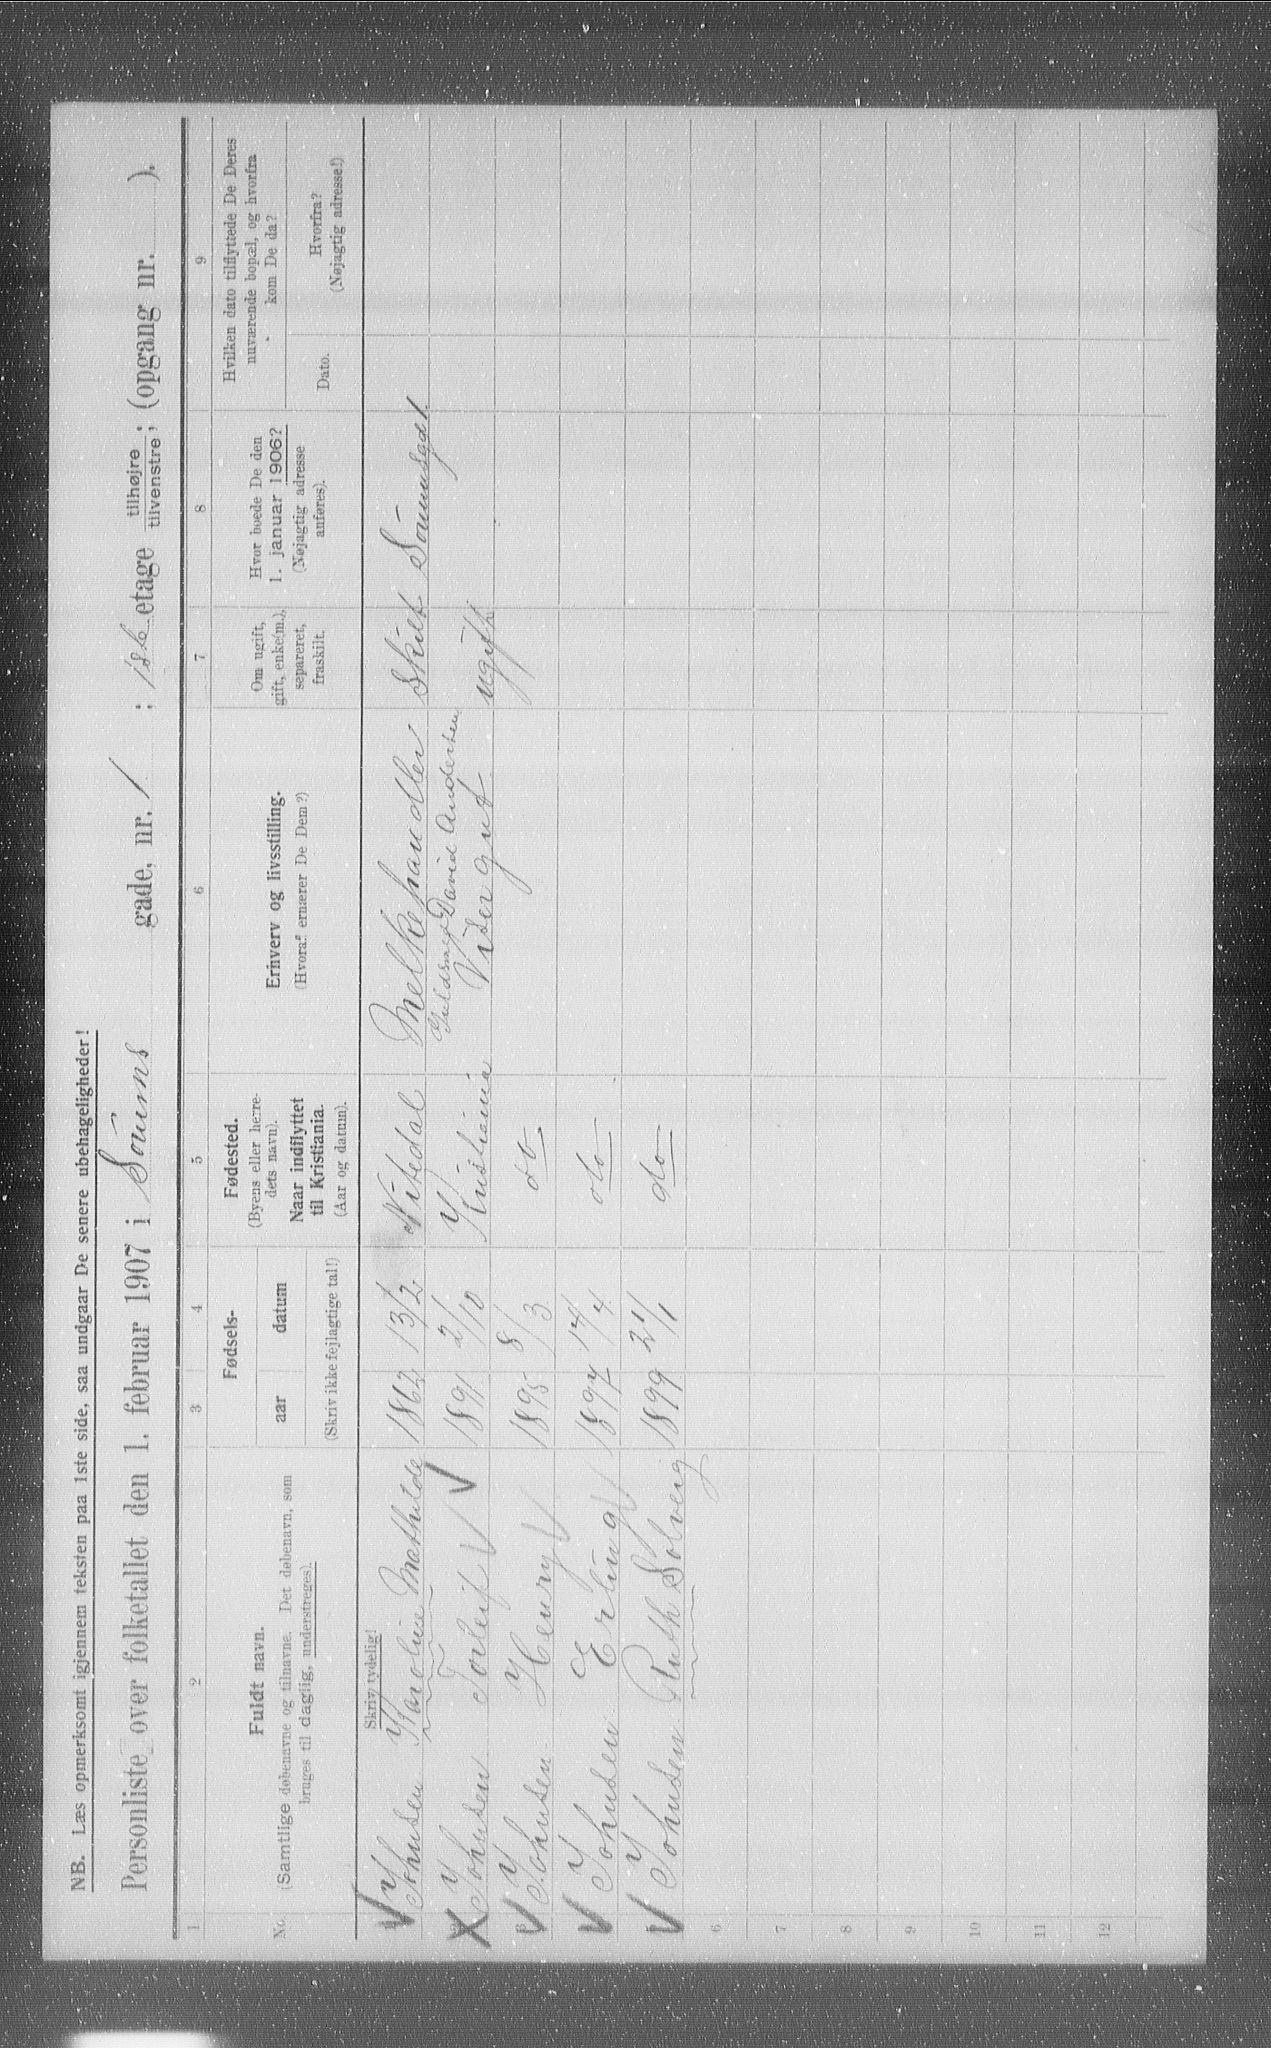 NB. Læs opmerksomt igjennem teksten paa 1ste side, saa undgaar De senere ubehageligheder!
Personliste over folketallet den 1. februar 1907 i Sørums gade, nr. 1 ; 1ste etage tilhøjre tilvenstre; (opgang nr. ).
1 2 3 4 5 6 7 8 9
No. Fuldt navn. (Samtlige døbenavne og tilnavne. Det døbenavn, som bruges til daglig, understreges).
Fødsels- aar datum (Skriv ikke fejlagtige tal!)
Fødested. (Byens eller herredets navn). Naar indflyttet til Kristiania. (Aar og datum).
Erhverv og livsstilling. (Hvoraf ernærer De Dem?)
Om ugift, gift, enke(m.), separeret, fraskilt.
Hvor boede De den 1. januar 1906? (Nøjagtig adresse anføres).
Hvilken dato tilflyttede De Deres nuværende bopæl, og hvorfra kom De da?
Dato. Hvorfra? (Nøjagtig adresse!)
Skriv tydelig!
Johnsen Karoline Mathilde 1862 13/2 Nitedal Melkehandler Skilt Sørumsgd 1.
Guldsmed David Andersen
Johnsen Torleif 1891 2/10 Kristiania Visergut ugift
3 Johnsen Henry 1895 8/3 do
Johnsen Erling 1897 14/4 do
Johnsen Ruth Solveig 1899 21/1 do
6
7
8
9
10
11
12